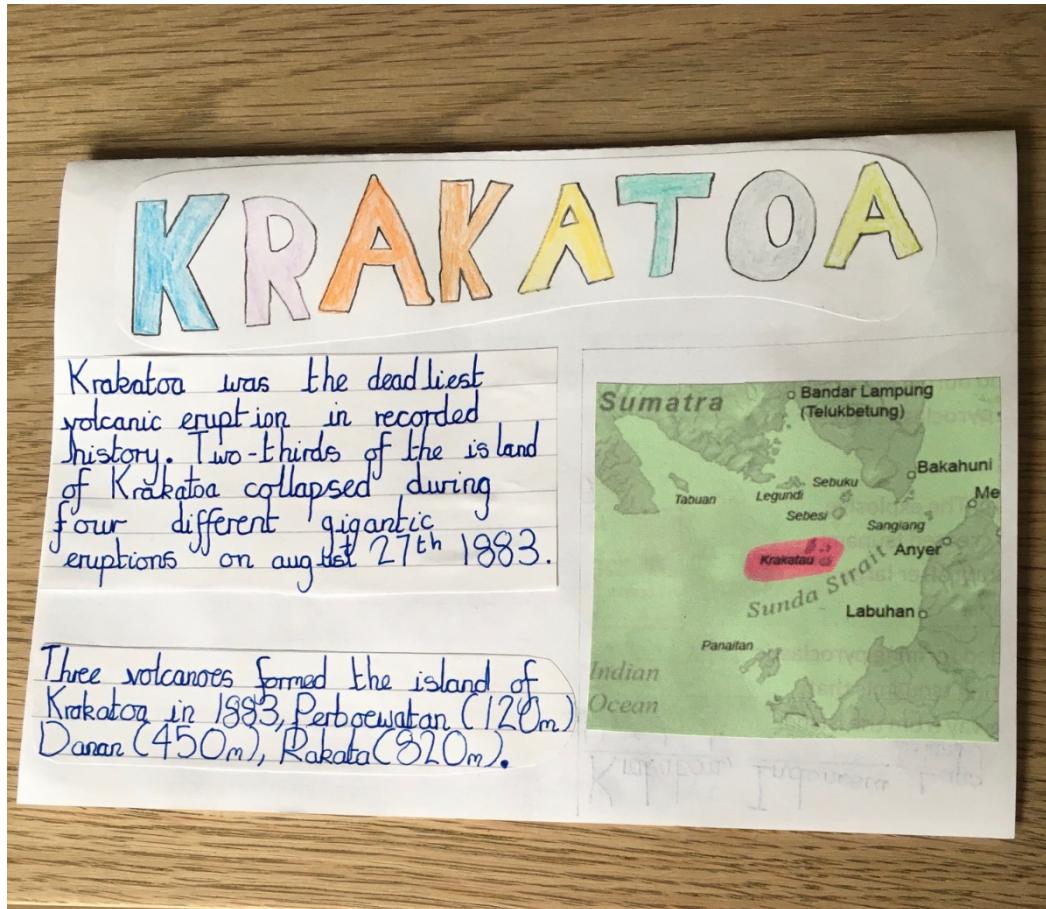 KRAKATOA
Krakatoa was the deadliest
volcanic eruption in recorded
history. Two-thirds of the island
of Krakatoa collapsed during
four different gigantic
eruptions on august 27th 1883.
Three volcanoes formed the island of
Krakatoa in 1883, Perboewatan (120m)
Danan (450m), Rakata (820m).
Sumatra
Bandar Lampung
(Telukbetung)
Bakahuni
Me
Tabuan
Legundi
Sebuku
Sebesi
Sangiang
Anyer
Krakatau
Sunda Strait
Labuhan
Panaitan
Indian
Ocean